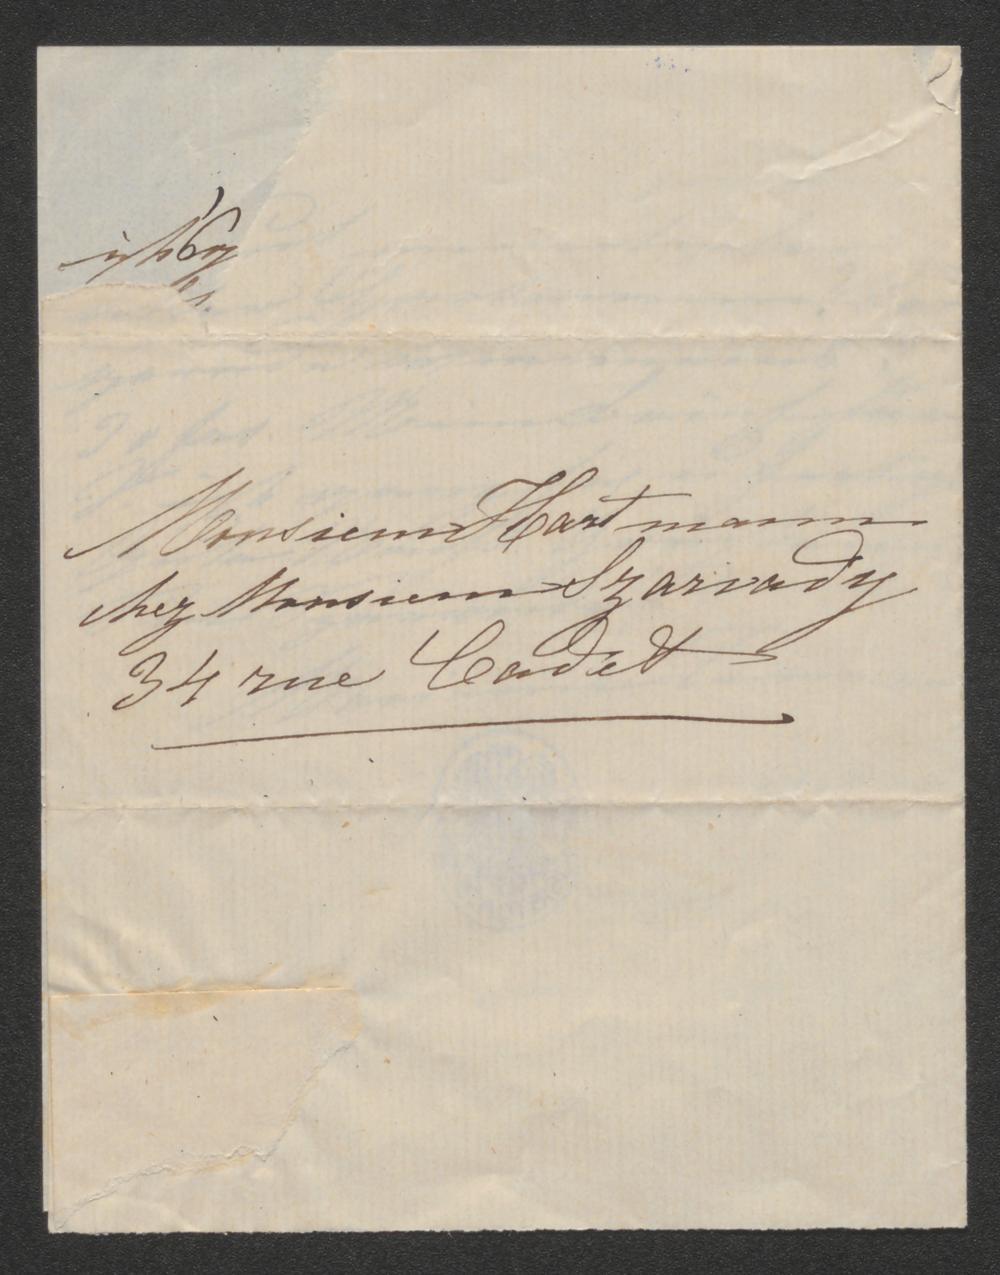 Monsieur Hartmann
chez Monsieur Szarvady
34 rue Cadet